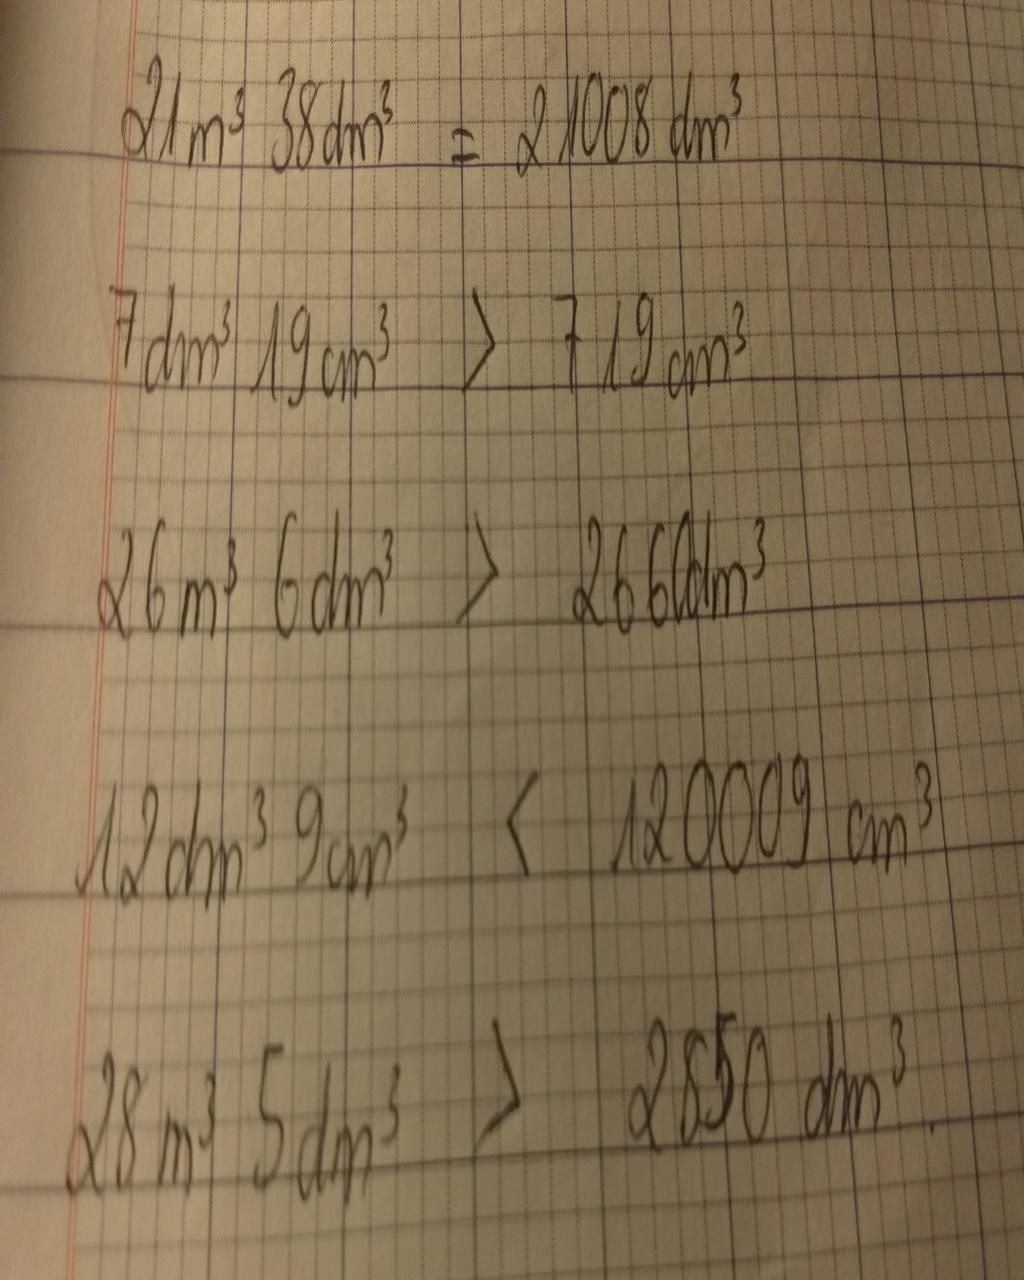 21m³ 38dm³ = 21008dm³
7dm³ 19cm³ > 719cm³
26m³ 6dm³ > 2660dm³
12dm³ 9cm³ < 120009 cm³
28m³ 5dm³ > 2850 dm³.